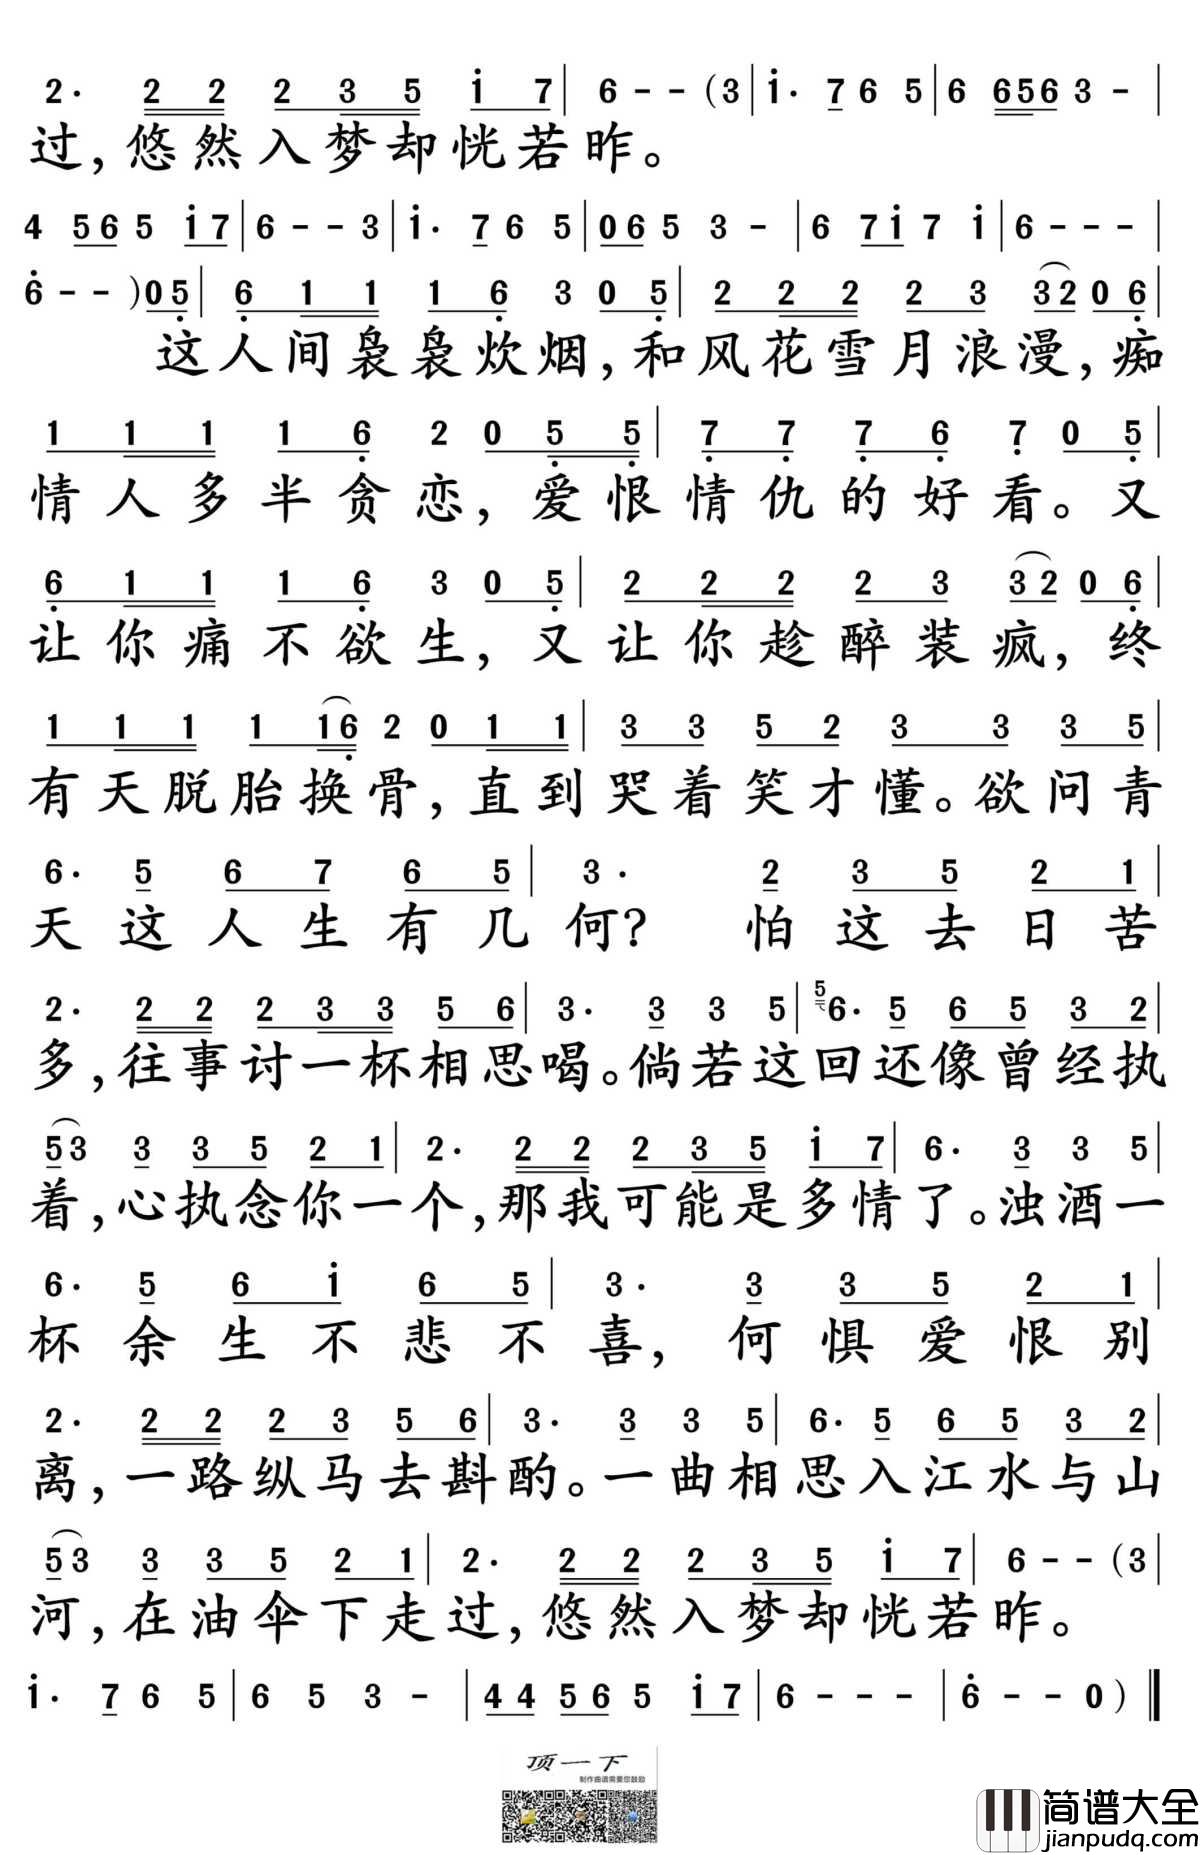 2· 2 2 2 3 5 i 7 | 6 - - (3 | i· 7 6 5 | 6 656 3 - |
过,悠然入梦却恍若昨。
4 56 5 i7 | 6 - - 3 | i· 7 6 5 | 06 5 3 - | 6 7i 7 i | 6 - - - |
6 - - )05 | 6 1 1 1 6 3 0 5 | 2 2 2 2 3 32 0 6 |
这人间袅袅炊烟,和风花雪月浪漫,痴
1 1 1 1 6 2 0 5 5 | 7 7 7 6 7 0 5 |
情人多半贪恋,爱恨情仇的好看。又
6 1 1 1 6 3 0 5 | 2 2 2 2 3 32 0 6 |
让你痛不欲生,又让你趁醉装疯,终
1 1 1 1 16 2 0 1 1 | 3 3 5 2 3 3 3 5 |
有天脱胎换骨,直到哭着笑才懂。欲问青
6· 5 6 7 6 5 | 3· 2 3 5 2 1 |
天这人生有几何? 怕这去日苦
2· 2 2 2 3 3 5 6 | 3· 3 3 5 | 5 6· 5 6 5 3 2 |
多,往事讨一杯相思喝。倘若这回还像曾经执
53 3 3 5 2 1 | 2· 2 2 2 3 5 i 7 | 6· 3 3 5 |
着,心执念你一个,那我可能是多情了。浊酒一
6· 5 6 i 6 5 | 3· 3 3 5 2 1 |
杯余生不悲不喜,何惧爱恨别
2· 2 2 2 3 5 6 | 3· 3 3 5 | 6· 5 6 5 3 2 |
离,一路纵马去斟酌。一曲相思入江水与山
53 3 3 5 2 1 | 2· 2 2 2 3 5 i 7 | 6 - - (3 |
河,在油伞下走过,悠然入梦却恍若昨。
i· 7 6 5 | 6 5 3 - | 44 56 5 i7 | 6 - - - | 6 - - 0 ) ‖
顶一下
制作曲谱需要您鼓励
简谱大全
jianpudq.com